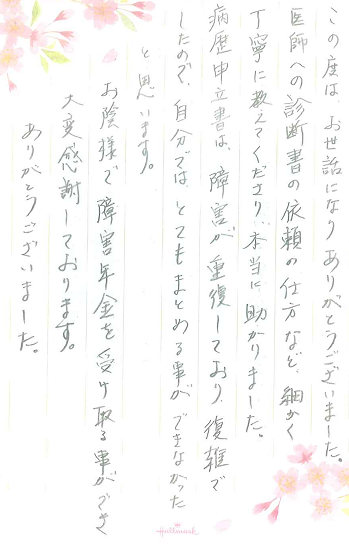 この度は、お世話になりありがとうございました。
医師への診断書の依頼の仕方など、細かく
丁寧に教えてくださり、本当に助かりました。
病歴申立書は、障害が重復しており、復雑で
したので、自分では、とてもまとめる事ができなかった
と思います。
お陰様で障害年金を受け取る事ができ
大変感謝しております。
ありがとうございました。
Hallmark